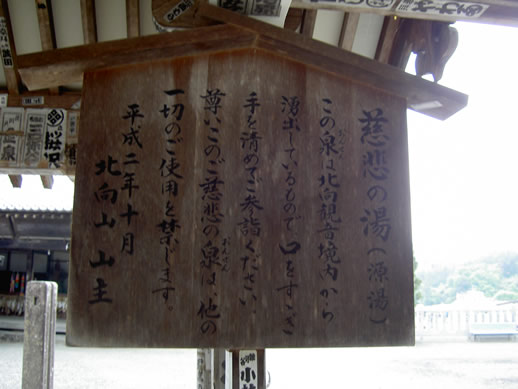 慈悲の湯(源湯)
この泉は北向観音境内から
湧出しているもので口をすゝぎ
手を清めてご参詣ください、
尊いこのご慈悲の泉は、他の
一切のご使用を禁じます。
平成二年十月
北向山 山主